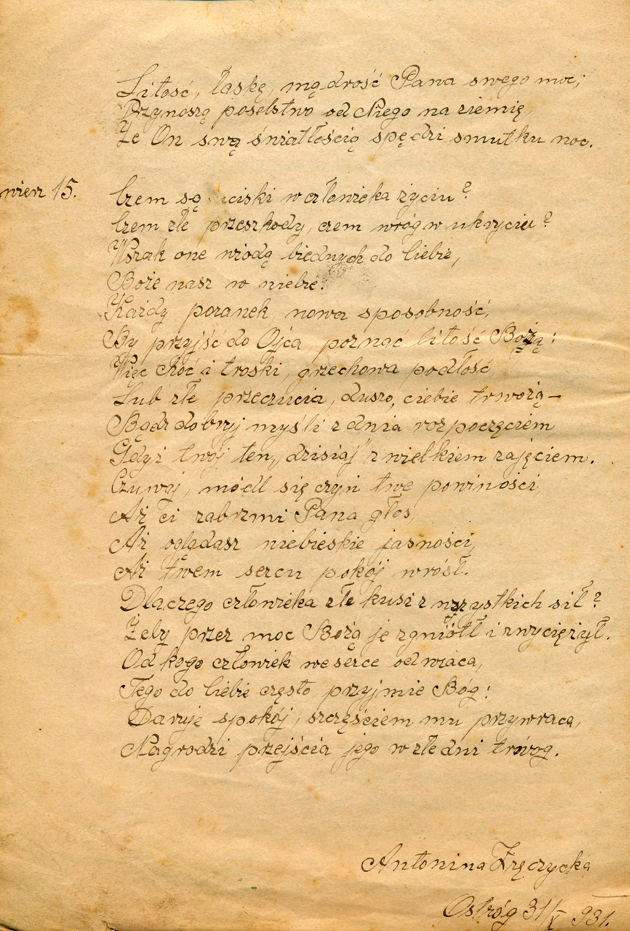 Litość, łaskę, mądrość Pana swego moc,
Przynoszą poselstwo od Niego na ziemię
Że On swą światłością spędzi smutku noc.
wiersz 15.
Czem są uciski w człowieka życiu?
Czem złe przeszkody, czem wróg w ukryciu?
Wszak one wiodą biednych do Ciebie,
Boże nasz w niebie!
Każdy poranek nowa sposobność,
By przyjść do Ojca poznać litość Bożą!
Więc choć i troski, grzechowa podłość
Lub złe przeczucia, duszo, ciebie trwożą –
Bądź dobrej myśli z dnia rozpoczęciem
Gdyż twój ten „dzisiaj" z wielkiem zajęciem.
Czuwaj, módl się czyń twe powinności
Aż ci zabrzmi Pana głos
Aż oglądasz niebieskie jasności,
Aż twem sercu pokój wrósł.
Dlaczego człowieka złe kusi z wszystkich sił?
Żeby przez moc Bożą je zgniótł i zwyciężył.
Od kogo człowiek we serce odwraca,
Tego do Ciebie często przyjmie Bóg!
Daruje spokój, szczęściem mu przywraca,
Nagrodzi przejścia jego w złe dni trwóg.
Antonina Zręczycka
Ostróg 31/X 931.